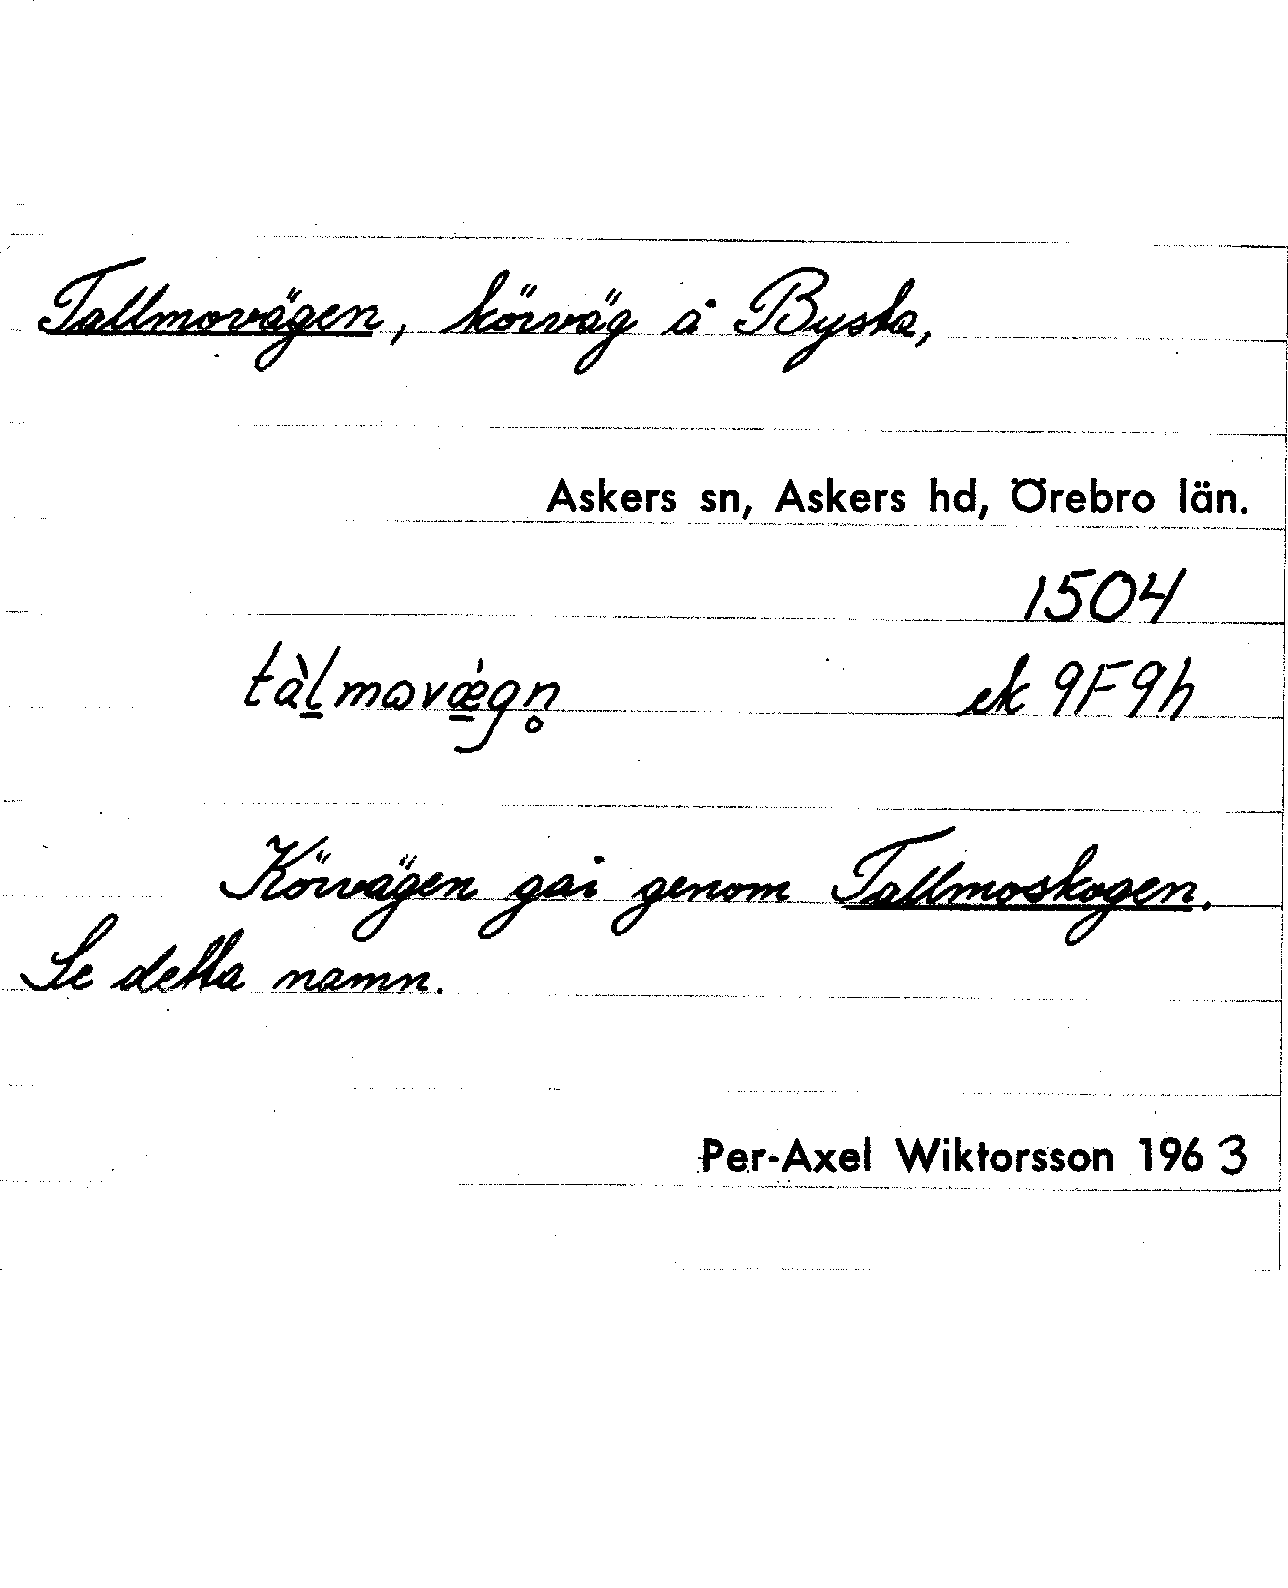 Tallmovägen, körväg å Bysta,
Askers sn, Askers hd, Örebro län.
1504
tàl̠mωvǽ̠gn̥ ek 9F9h
Körvägen går genom Tallmoskogen.
Se detta namn.
Per-Axel Wiktorsson 1963